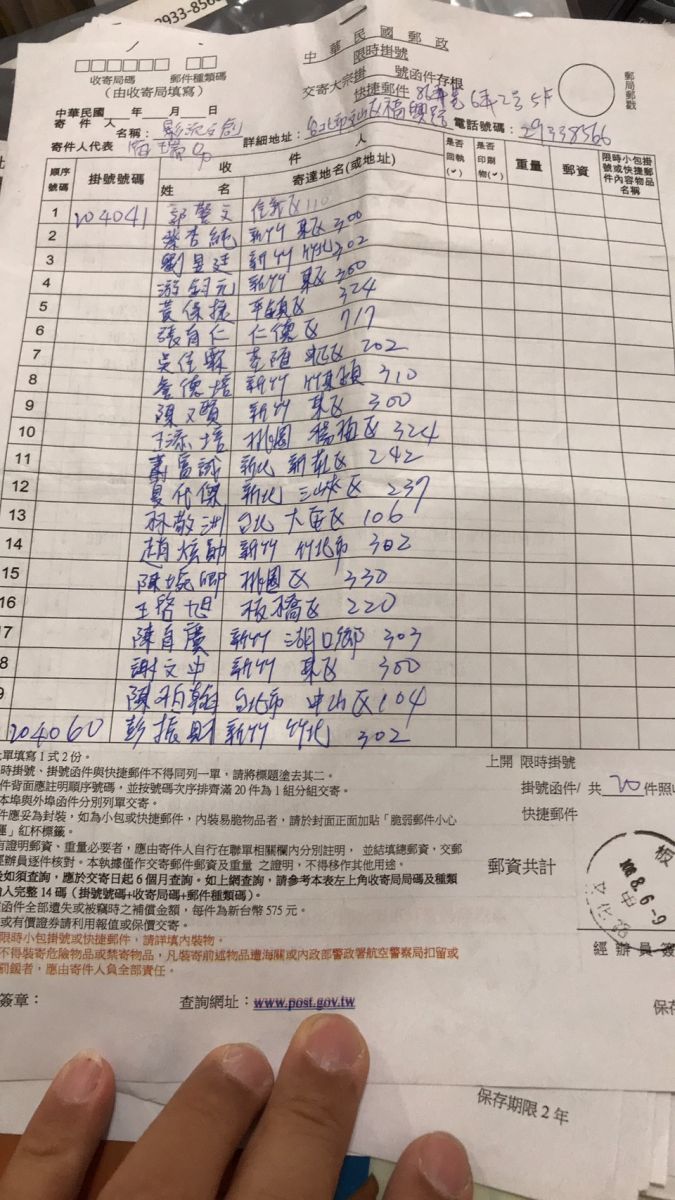 2933-8566
中華民國郵政
限時掛號
交寄大宗掛 號函件存根
快捷郵件
收寄局碼 郵件種類碼
(由收寄局填寫)
郵局郵戳
中華民國 年 月 日
寄件人 名稱：影流文創 詳細地址：台北市文山區福興路86巷6弄2号5F 電話號碼：29338566
寄件人代表
順序號碼 掛號號碼 收件人 姓名 寄達地名(或地址) 是否回執(✓) 是否印刷物(✓) 重量 郵資 限時小包掛號或快捷郵件內容物品名稱
1 204041 郭馨文 信義區110
2 蔡杏純 新竹 東區 300
3 劉昱廷 新竹 竹北 302
4 游鈞元 新竹 東區 300
5 黃保捷 平鎮區 324
6 張育仁 仁德區 717
7 吳佳霖 基隆 202
8 詹德培 新竹 310
9 陳又賢 新竹 東區 300
10 王添培 桃園 楊梅區 324
11 新北 新莊區 242
12 夏代傑 新北 三峽區 237
13 林敬洲 台北 大安區 106
14 趙炫勛 新竹 竹北市 302
15 陳婉卿 桃園區 330
16 王啓旭 板橋區 220
7 陳自廣 新竹 湖口鄉 303
8 謝文中 新竹 東區 300
9 陳栢翰 台北市 中山區104
204060 彭振財 新竹 竹北 302
單填寫1式2份。
時掛號、掛號函件與快捷郵件不得同列一單，請將標題塗去其二。
件背面應註明順序號碼，並按號碼次序排齊滿20件為1組分組交寄。
本埠與外埠函件分別列單交寄。
件應妥為封裝，如為小包或快捷郵件，內裝易脆物品者，請於封面正面加貼「脆弱郵件小心
」紅杯標籤。
有證明郵資，重量必要者，應由寄件人自行在聯單相關欄內分別註明，並結填總郵資，交郵
經辦員逐件核對。本執據僅作交寄郵件郵資及重量之證明，不得移作其他用途。
後如須查詢，應於交寄日起6個月查詢。如上網查詢，請參考本表左上角收寄局局碼及種類
輸入完整14碼（掛號號碼+收寄局碼+郵件種類碼）。
函件全部遺失或被竊時之補償金額，每件為新台幣575元。
或有價證券請利用報值或保價交寄。
限時小包掛號或快捷郵件，請詳填內裝物。
不得裝寄危險物品或禁寄物品，凡裝寄前述物品遭海關或內政部警政署航空警察局扣留或
罰鍰者，應由寄件人員全部責任。
上開 限時掛號
掛號函件/ 共20件照
快捷郵件
郵資共計
板
108.8.6-9
文化
經辦員簽
簽章：
查詢網址：www.post.gov.tw
保存
保存期限2年